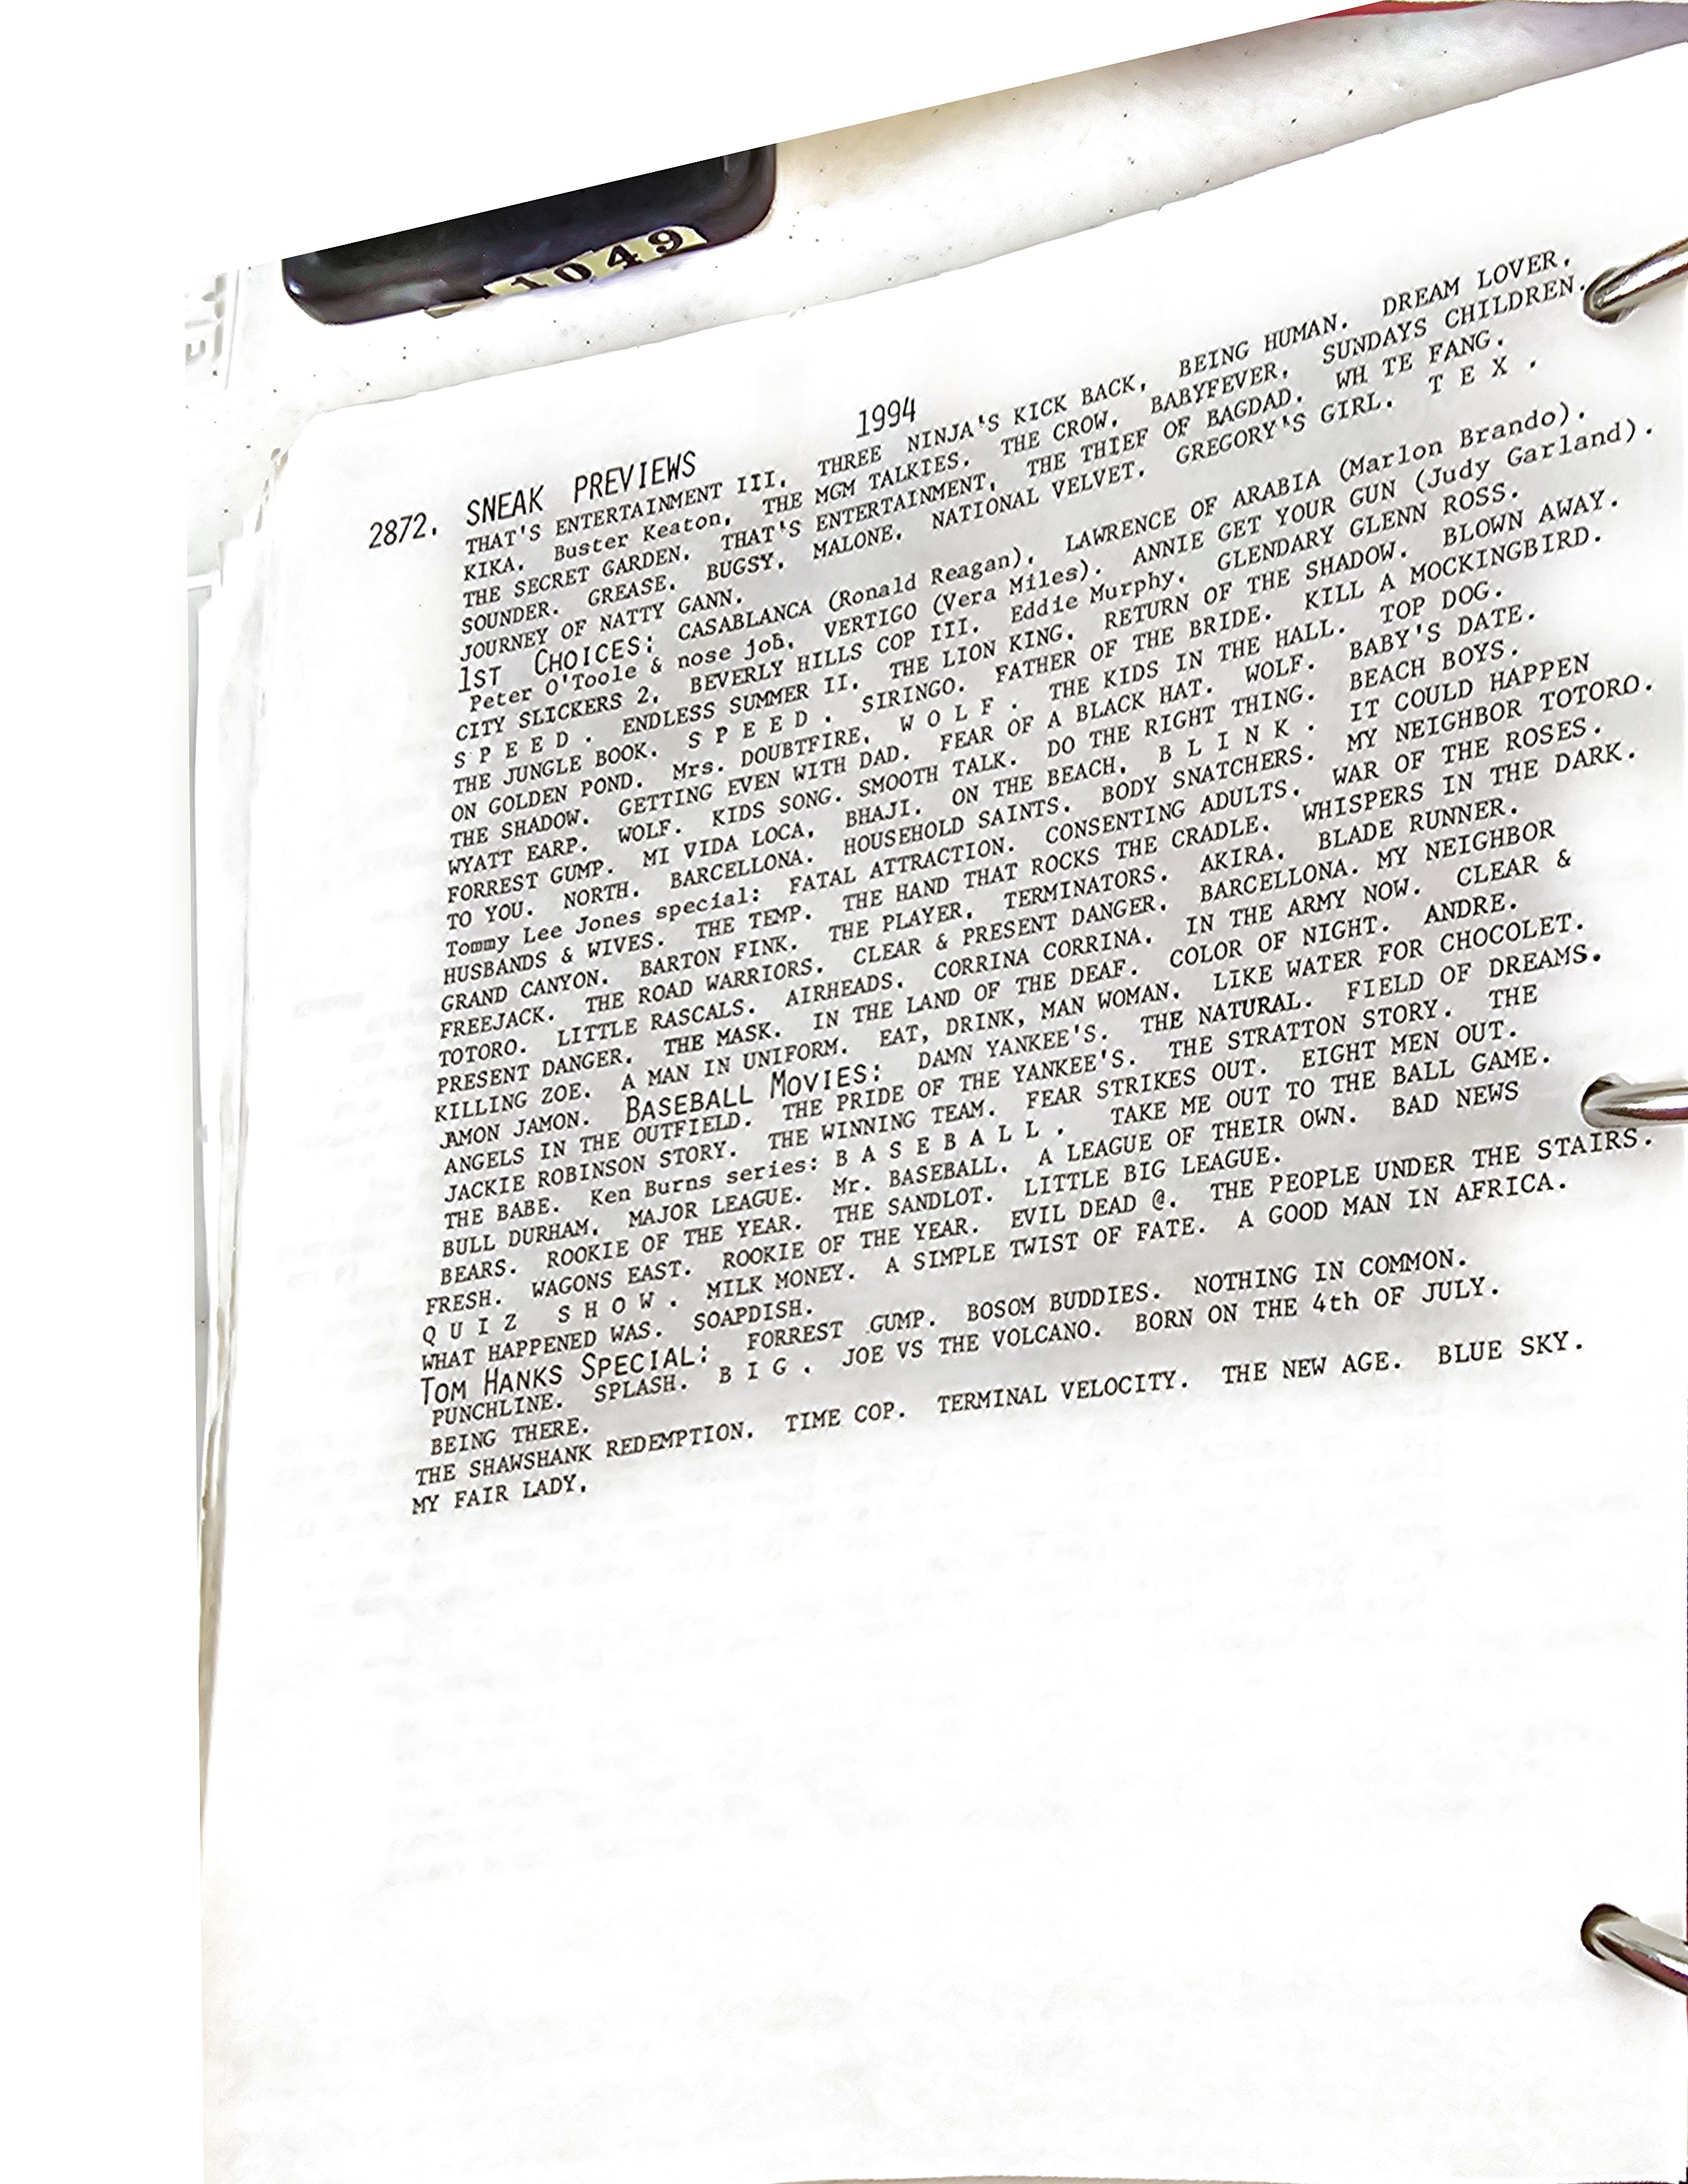 1049
1994
2872. SNEAK PREVIEWS
THAT'S ENTERTAINMENT III. THREE NINJA'S KICK BACK. BEING HUMAN. DREAM LOVER.
KIKA. Buster Keaton. THE MGM TALKIES. THE CROW. BABYFEVER. SUNDAYS CHILDREN.
THE SECRET GARDEN. THAT'S ENTERTAINMENT. THE THIEF OF BAGDAD. WH TE FANG.
SOUNDER. GREASE. BUGSY. MALONE. NATIONAL VELVET. GREGORY'S GIRL. T E X .
JOURNEY OF NATTY GANN.
1ST CHOICES: CASABLANCA (Ronald Reagan). LAWRENCE OF ARABIA (Marlon Brando).
Peter O'Toole & nose job. VERTIGO (Vera Miles). ANNIE GET YOUR GUN (Judy Garland).
CITY SLICKERS 2. BEVERLY HILLS COP III. Eddie Murphy. GLENDARY GLENN ROSS.
S P E E D . ENDLESS SUMMER II. THE LION KING. RETURN OF THE SHADOW. BLOWN AWAY.
THE JUNGLE BOOK. S P E E D . SIRINGO. FATHER OF THE BRIDE. KILL A MOCKINGBIRD.
ON GOLDEN POND. Mrs. DOUBTFIRE. W O L F . THE KIDS IN THE HALL. TOP DOG.
THE SHADOW. GETTING EVEN WITH DAD. FEAR OF A BLACK HAT. WOLF. BABY'S DATE.
WYATT EARP. WOLF. KIDS SONG. SMOOTH TALK. DO THE RIGHT THING. BEACH BOYS.
FORREST GUMP. MI VIDA LOCA. BHAJI. ON THE BEACH. B L I N K . IT COULD HAPPEN
TO YOU. NORTH. BARCELLONA. HOUSEHOLD SAINTS. BODY SNATCHERS. MY NEIGHBOR TOTORO.
Tommy Lee Jones special: FATAL ATTRACTION. CONSENTING ADULTS. WAR OF THE ROSES.
HUSBANDS & WIVES. THE TEMP. THE HAND THAT ROCKS THE CRADLE. WHISPERS IN THE DARK.
GRAND CANYON. BARTON FINK. THE PLAYER. TERMINATORS. AKIRA. BLADE RUNNER.
FREEJACK. THE ROAD WARRIORS. CLEAR & PRESENT DANGER. BARCELLONA. MY NEIGHBOR
TOTORO. LITTLE RASCALS. AIRHEADS. CORRINA CORRINA. IN THE ARMY NOW. CLEAR &
PRESENT DANGER. THE MASK. IN THE LAND OF THE DEAF. COLOR OF NIGHT. ANDRE.
KILLING ZOE. A MAN IN UNIFORM. EAT, DRINK, MAN WOMAN. LIKE WATER FOR CHOCOLET.
JAMON JAMON. BASEBALL MOVIES: DAMN YANKEE'S. THE NATURAL. FIELD OF DREAMS.
ANGELS IN THE OUTFIELD. THE PRIDE OF THE YANKEE'S. THE STRATTON STORY. THE
JACKIE ROBINSON STORY. THE WINNING TEAM. FEAR STRIKES OUT. EIGHT MEN OUT.
THE BABE. Ken Burns series: B A S E B A L L . TAKE ME OUT TO THE BALL GAME.
BULL DURHAM. MAJOR LEAGUE. Mr. BASEBALL. A LEAGUE OF THEIR OWN. BAD NEWS
BEARS. ROOKIE OF THE YEAR. THE SANDLOT. LITTLE BIG LEAGUE.
FRESH. WAGONS EAST. ROOKIE OF THE YEAR. EVIL DEAD @. THE PEOPLE UNDER THE STAIRS.
Q U I Z S H O W . MILK MONEY. A SIMPLE TWIST OF FATE. A GOOD MAN IN AFRICA.
WHAT HAPPENED WAS. SOAPDISH.
TOM HANKS SPECIAL: FORREST GUMP. BOSOM BUDDIES. NOTHING IN COMMON.
PUNCHLINE. SPLASH. B I G . JOE VS THE VOLCANO. BORN ON THE 4th OF JULY.
BEING THERE.
THE SHAWSHANK REDEMPTION. TIME COP. TERMINAL VELOCITY. THE NEW AGE. BLUE SKY.
MY FAIR LADY.